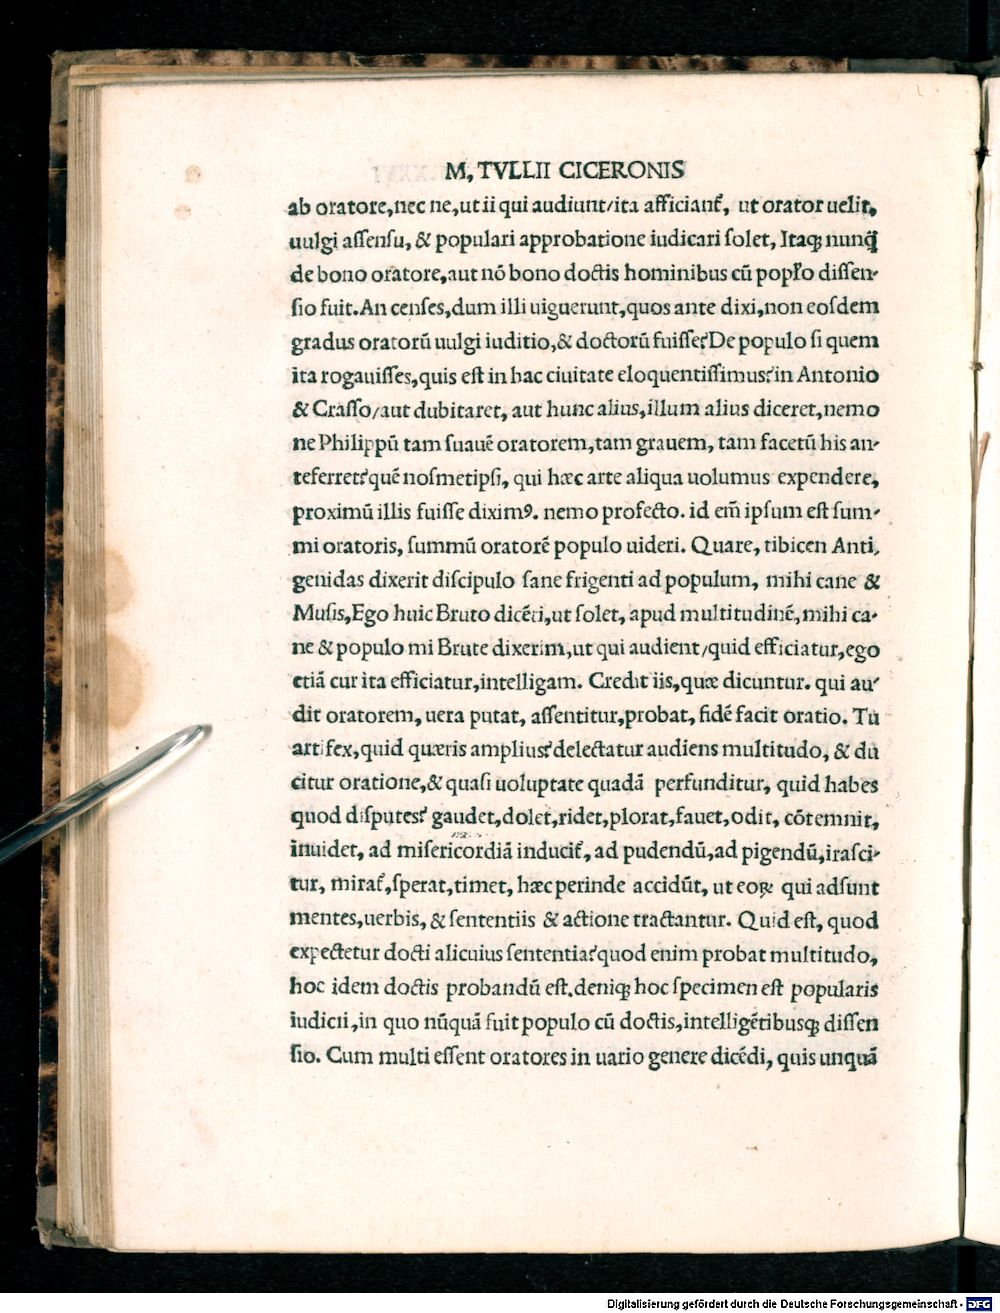 M, TVLLII CICERONIS
ab oratore,nec ne,ut ii qui audiunt/ita afficiant᷑, ut orator uelit,
uulgi assensu, & populari approbatione iudicari solet, Itaqꝫ nunq̄
de bono oratore,aut nō bono doctis hominibus cū popɫo dissen-
sio fuit.An censes,dum illi uiguerunt,quos ante dixi,non eosdem
gradus oratorū uulgi iuditio,& doctorū fuisse?De populo si quem
ita rogauisses,quis est in hac ciuitate eloquentissimus?in Antonio
& Crasso/aut dubitaret, aut hunc alius,illum alius diceret,nemo
ne Philippū tam suauē oratorem,tam grauem, tam facetū his an-
teferret?quē nosmetipsi, qui hæc arte aliqua uolumus expendere,
proximū illis fuisse diximꝰ. nemo profecto. id em̄ ipsum est sum-
mi oratoris, summū oratorē populo uideri. Quare, tibicen Anti,
genidas dixerit discipulo sane frigenti ad populum, mihi cane &
Musis,Ego huic Bruto dicēti,ut solet, apud multitudinē, mihi ca-
ne & populo mi Brute dixerim,ut qui audient/quid efficiatur,ego
etiā cur ita efficiatur,intelligam. Credit iis,quæ dicuntur. qui au-
dit oratorem, uera putat, assentitur,probat, fidē facit oratio. Tu
artifex,quid quæris amplius?delectatur audiens multitudo, & du
citur oratione,& quasi uoluptate quadā perfunditur, quid habes
quod disputes? gaudet,dolet,ridet,plorat,fauet,odit, cōtemnit,
inuidet, ad misericordiā inducit᷑, ad pudendū,ad pigendū,irasci-
tur, mirat᷑,sperat,timet, hæc perinde accidūt, ut eoꝝ qui adsunt
mentes,uerbis, & sententiis & actione tractantur. Quid est, quod
expectetur docti alicuius sententia?quod enim probat multitudo,
hoc idem doctis probandū est.deniqꝫ hoc specimen est popularis
iudicii,in quo nūquā fuit populo cū doctis,intelligētibusqꝫ dissen
sio. Cum multi essent oratores in uario genere dicēdi, quis unquā
Digitalisierung gefördert durch die Deutsche Forschungsgemeinschaft - DFG